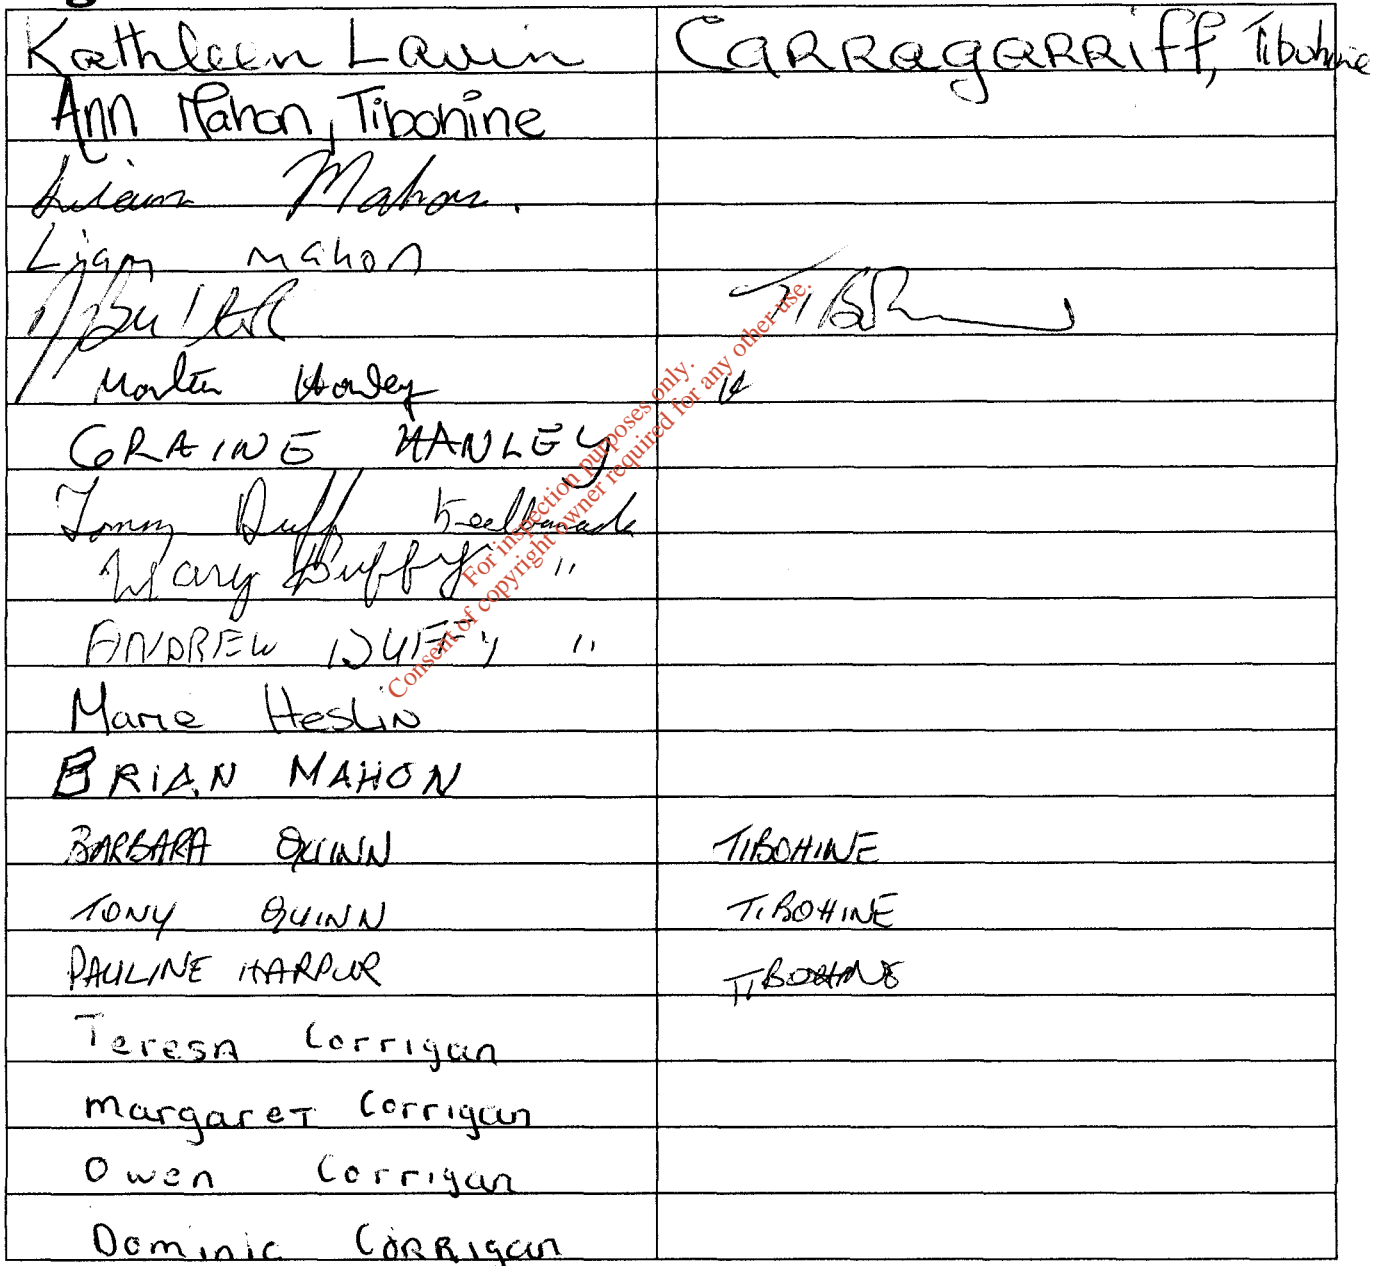 Kathleen Lavin CARRagaRRiff, Tibohine
Ann Mahon, Tibohine
Liam Mahon.
Liam Mahon
TIBOh
Martin Hanley
GRAINE HANLEY
Tommy Duffy
Mary Duffy "
ANDREW DUFFY "
Marie HesLiN
BRIAN MAHON
BARBARA QUINN TIBOHINE
TONY QUINN TIBOHINE
PAULINE HARPUR TIBOHINE
Teresa Corrigan
margareT Corrigan
Owen Corrigan
Dominic CORRigan
For inspection purposes only.
Consent of copyright owner required for any other use.